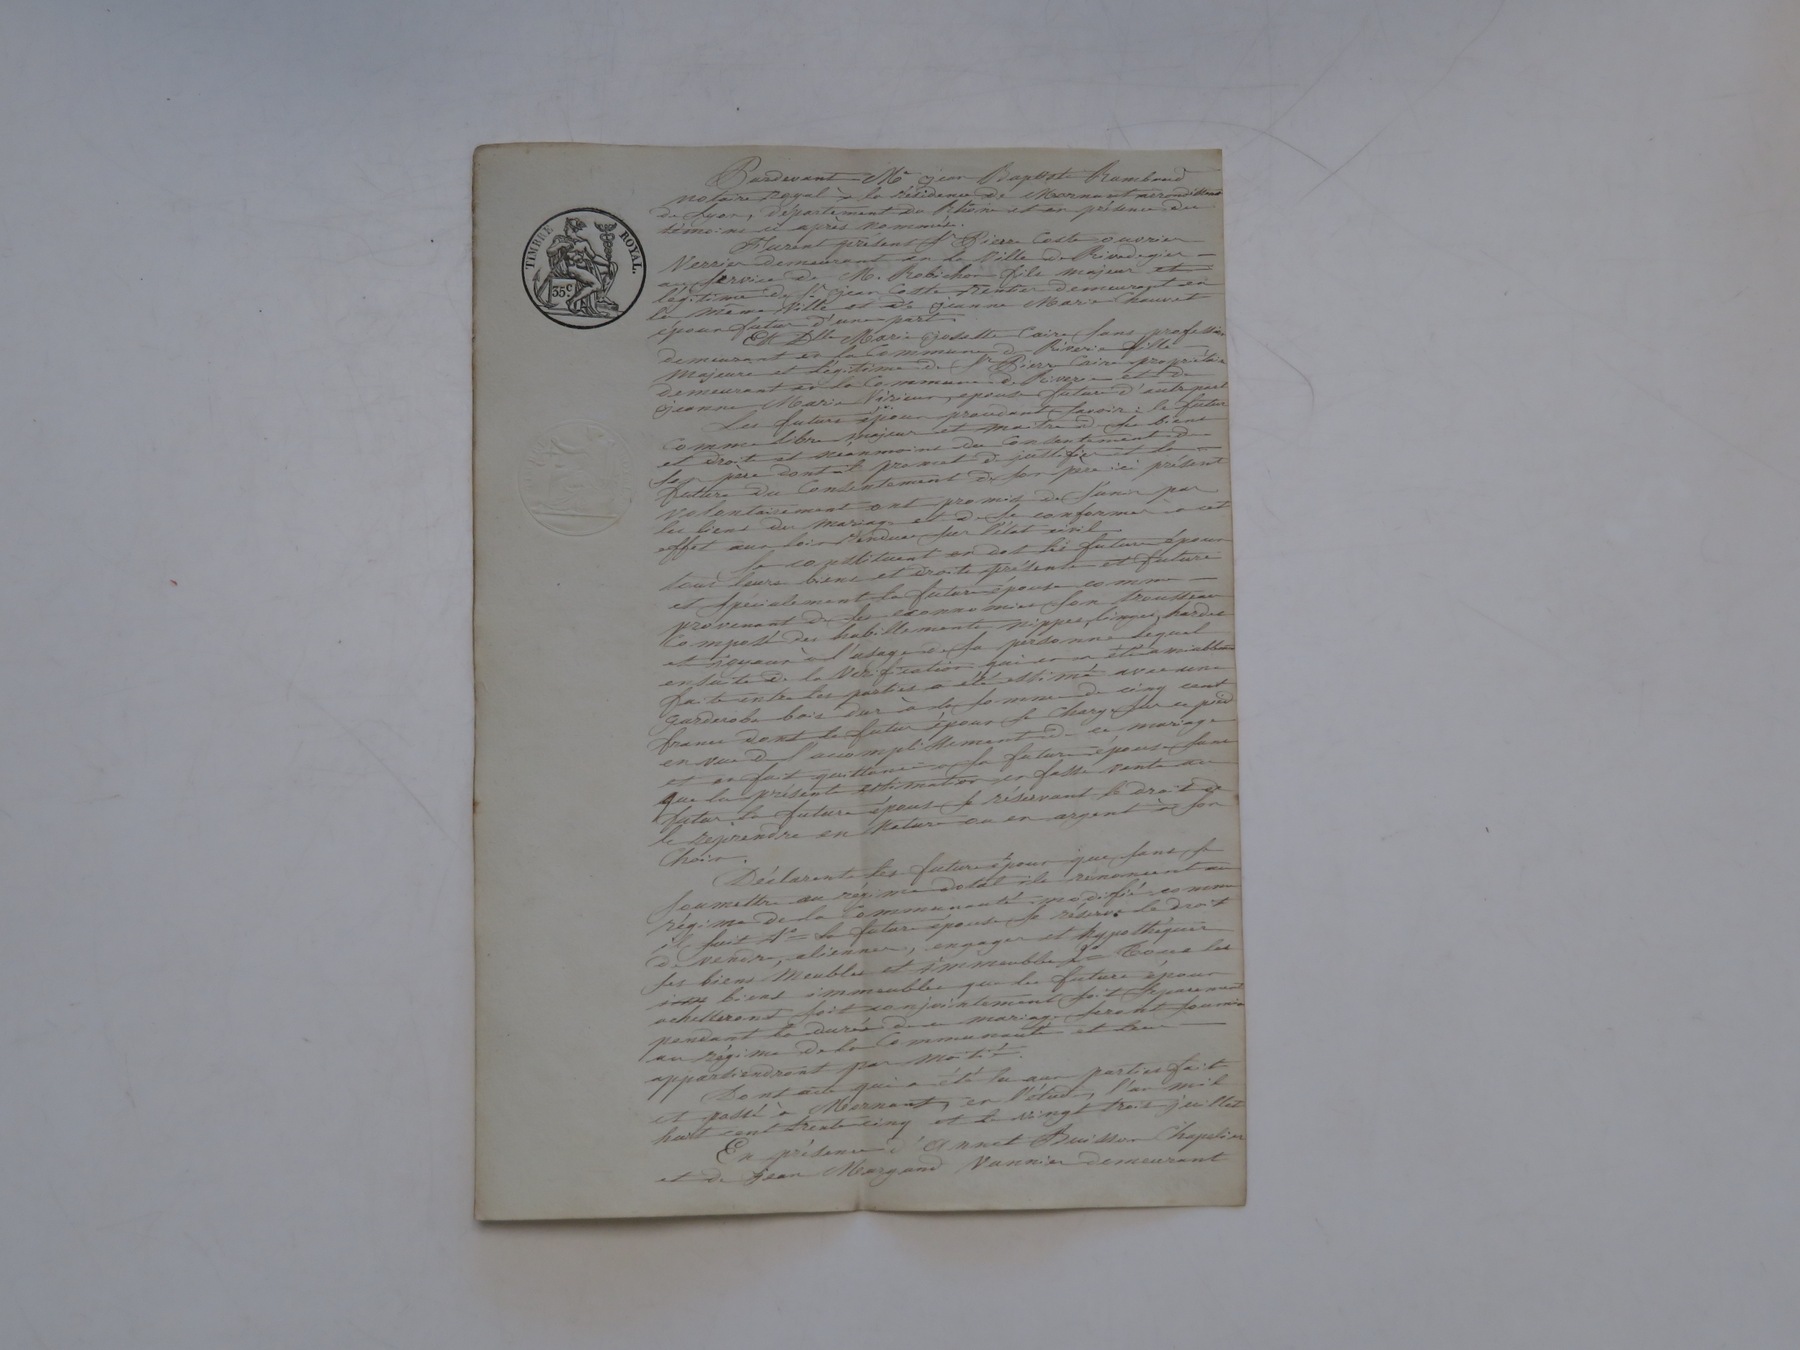 TIMBRE ROYAL.
35 c.
Pardevant Me jean Baptiste Rambaud
notaire Royal à la résidence de Mornant arrondissment
de Lyon, département du Rhône et en présence des
témoins ci après nommés.
Furent présent Sr Pierre Coste ouvrier
Verrier demeurant en la Ville de Rivedegier
au service de M. Robichon fils majeur et
légitime de Sr jean Coste rentier demeurant en
la meme Ville et de jeanne Marie Chauvet
époux futur d'une part,
Et Dlle Marie josette Caire sans profession
demeurant en la Commune de Riverie fille
majeure et légitime de Sr Pierre Caire propriétaire
demeurant en la Commune de Riverie et de
jeanne Marie epouse future d'autre part
Les futurs époux procédant savoir : le futur
comme libre majeur et maitre de ses biens
et droits et néanmoins du consentement de
son père dont il promet de justifier et la
future du consentement de son père ici présent
volontairement ont promis de s'unir par
les liens du mariage et de se conformer à cet
effet aux lois rendues sur l'état civil.
Se constituent en dot les futurs époux
tous leurs biens et droits présents et futurs
et spécialement la future épouse comme
provenant de ses économies son trousseau
composé des habillements nippes, linges, hardes
et joyaux à l'usage de sa personne lequel
ensuite de la vérification qui en a été amiablement
faite entre les parties a été estimé avec une
garderobe bois dur à la somme de cinq cent
francs dont le futur époux se charge sur ce pied
en vue de l'accomplissement de ce mariage
et en fait quittance à sa future épouse sans
que la présente estimation en fasse vente au
futur la future épouse se réservant le droit de
le reprendre en nature ou en argent à son
choix.
Déclarent les futurs époux que sans se
soumettre au régime dotal ils renoncent au
régime de la communauté modifié comme
il suit 1o = la future épouse se réserve le droit
de vendre, alienner, engager et hypothéquer
ses biens meubles et immeubles 2o = Tous les
biens immeubles que les futurs époux
achetteront soit conjointement soit séparement
pendant la durée de ce mariage seront soumis
au régime de la Communauté et leur
appartiendront par moitié.
Dont acte qui a été lu aux parties fait
et passé à Mornant, en l'étude, l'an mil
huit cent trente cinq et le vingt trois juillet
En présence d'Annet Buisson Chapelier
et de jean Margand Vannier demeurant